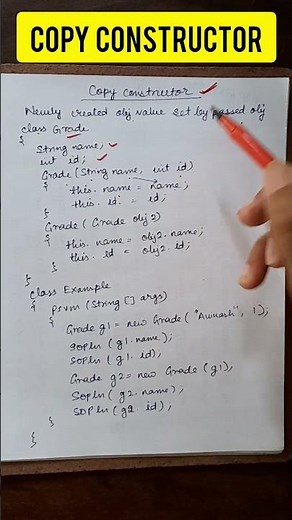 COPY CONSTRUCTOR
Copy Constructor
Newly created obj value set by passed obj
class Grade
{
String name;
int id;
Grade (String name, int id)
{ this. name = name;
this. id = id;
}
Grade ( Grade obj2)
{ this. name = obj2. name;
this. id = obj2. id;
}
}
Class Example
{ psvm (String [] args)
{ Grade g1 = new Grade ( "Awnash", 1);
SOPln ( g1. name);
SOPln ( g1. id);
Grade g2 = new Grade ( g1);
Sopln ( g2. name);
SOPln ( g2 id);
}
}